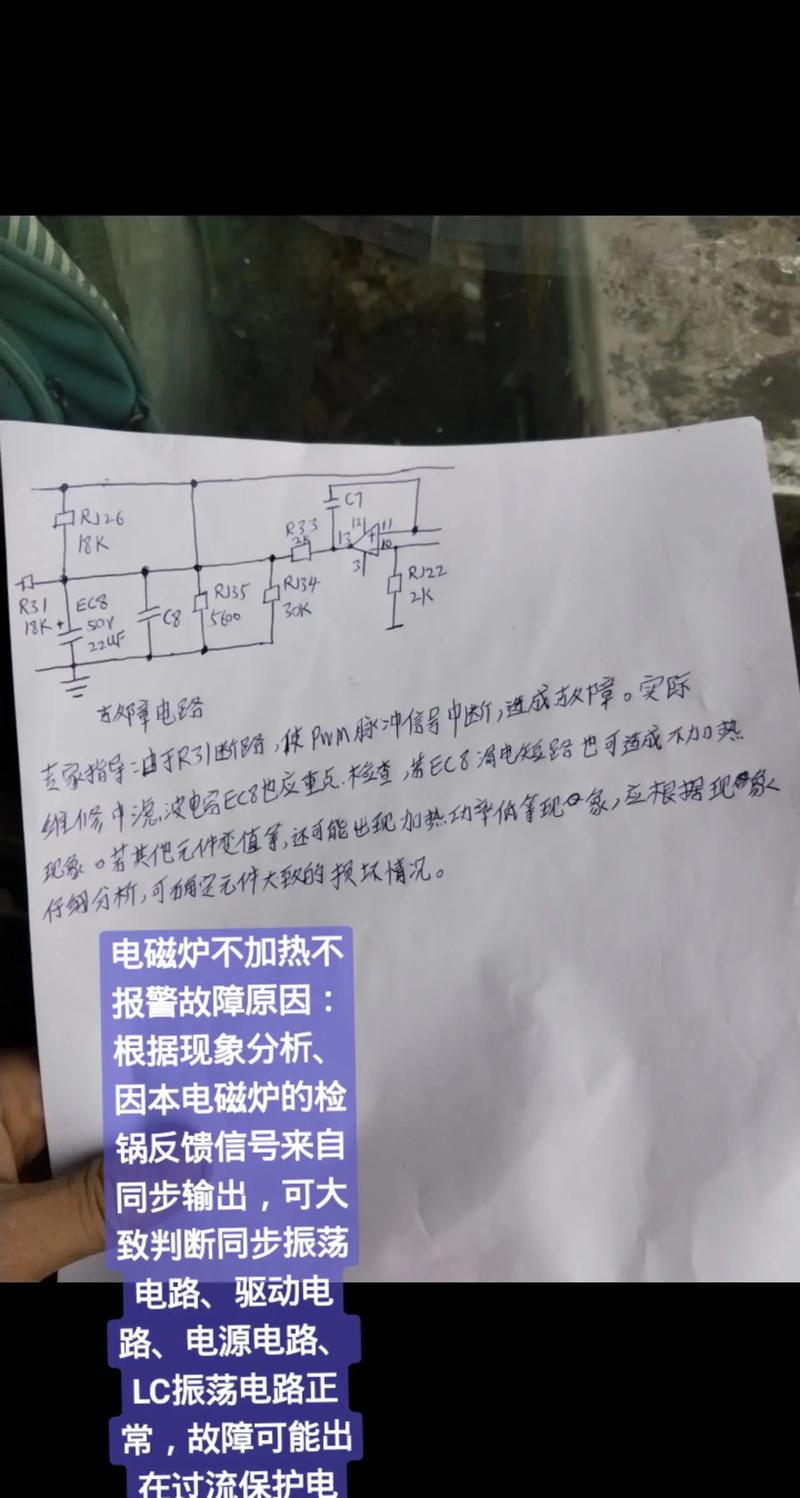 RJ26
18K
R31
18K
EC8
50V
22uF
C8
RJ35
5600
R33
2K
RJ34
30K
C7
12
11
13
10
3
RJ22
2K
故障电路
专家指导:由于R31断路,使PWM脉冲信号中断,造成故障。实际
维修中滤波电容EC8也应重点检查,若EC8漏电短路也可造成不加热
现象。若其他元件变值等,还可能出现加热功率低等现象,应根据现象
仔细分析,可确定元件大致的损坏情况。
电磁炉不加热不
报警故障原因：
根据现象分析、
因本电磁炉的检
锅反馈信号来自
同步输出，可大
致判断同步振荡
电路、驱动电
路、电源电路、
LC振荡电路正
常，故障可能出
在过流保护电